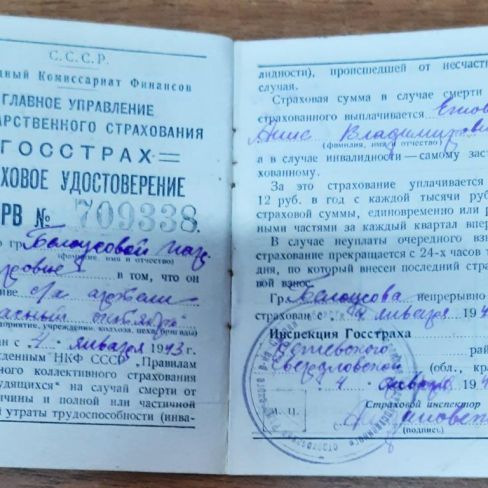 С.С.С.Р.
дный Комиссариат Финансов
ГЛАВНОЕ УПРАВЛЕНИЕ
АРСТВЕННОГО СТРАХОВАНИЯ
ГОССТРАХ
ХОВОЕ УДОСТОВЕРЕНИЕ
РВ № 709338
о гр. Белоусовой
(фамилия, имя и отчество)
в том, что он
иве с/х артели
(предприятие, учреждение, колхоза, цеха, бригады)
ан с 4 января 1943 г.
жденным НКФ СССР „Правилам
ного коллективного страхования
удящихся" на случай смерти от
чины и полной или частичной
й утраты трудоспособности (инва-
алидности), происшедшей от несчаст
случая.
Страховая сумма в случае смерти
страхованного выплачивается
Владимиров
(фамилия, имя и отчество)
а в случае инвалидности—самому заст
хованному.
За это страхование уплачивается
12 руб. в год с каждой тысячи руб
страховой суммы, единовременно или р
ными частями за каждый квартал впер
В случае неуплаты очередного взн
страхование прекращается с 24-х часов т
дня, по который внесен последний страх
вой взнос.
Гр. Белоусова непрерывно
страхован с 4 января 194
Инспекция Госстраха
рай
Свердловской (обл., кра
4 января 194
Страховой инспектор
(подпись)